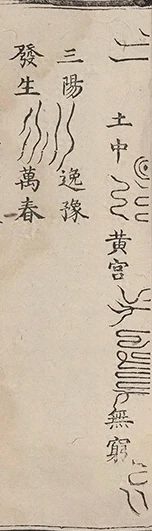 土中黄宫無窮
三陽逸豫
發生萬春